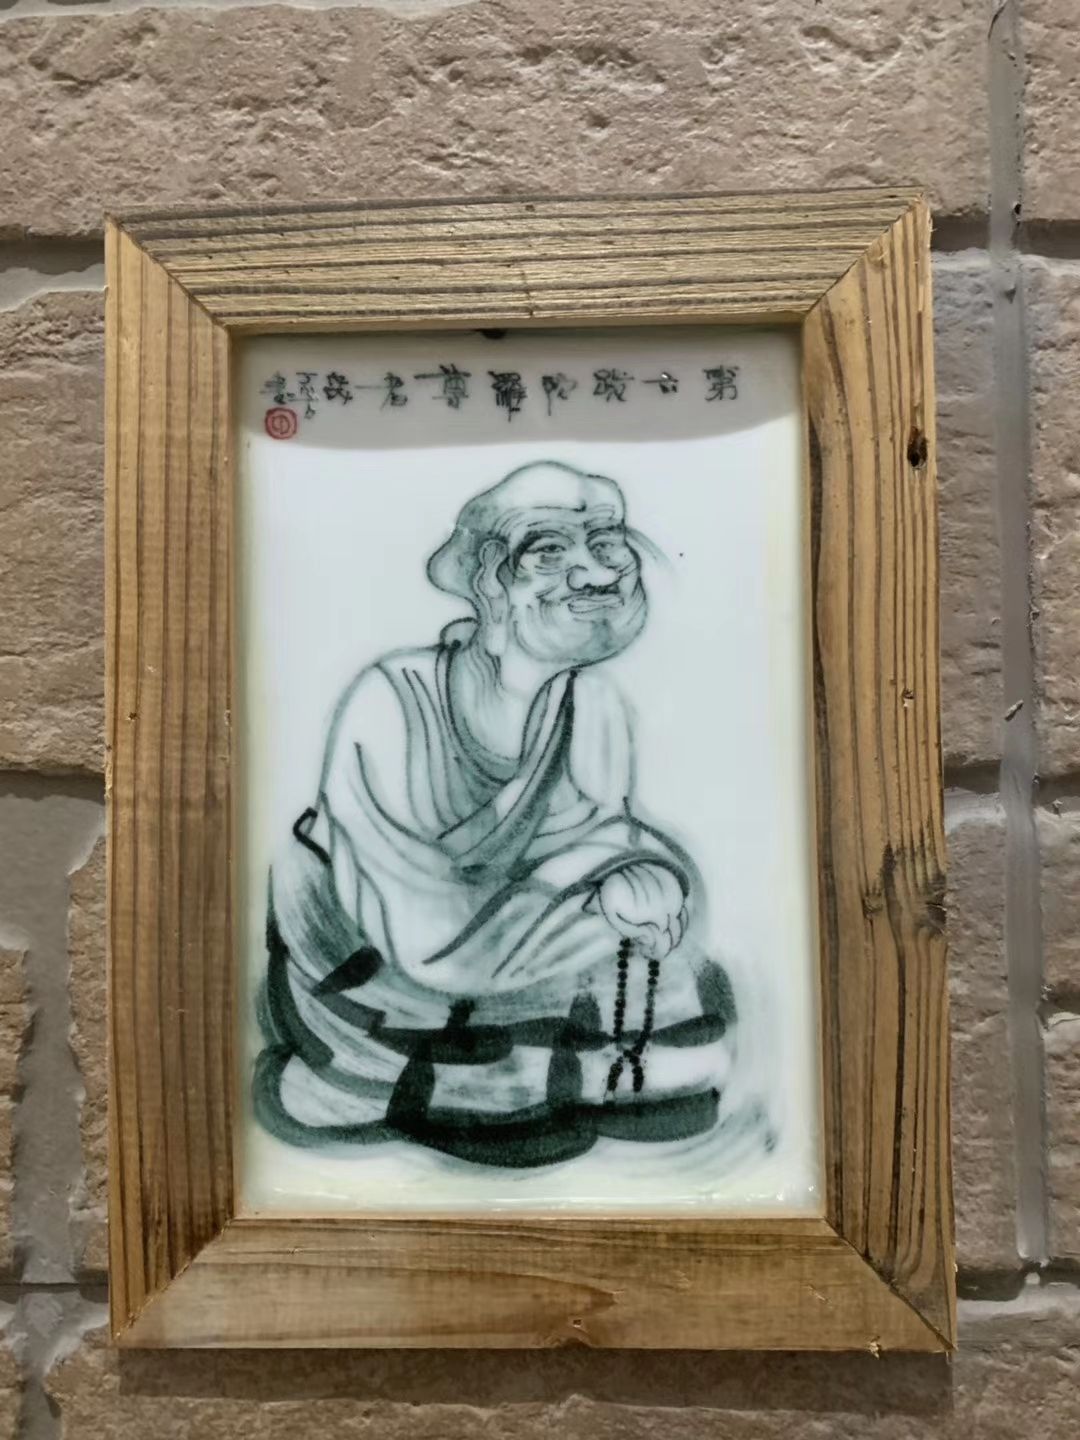 第六跋陀羅尊者一